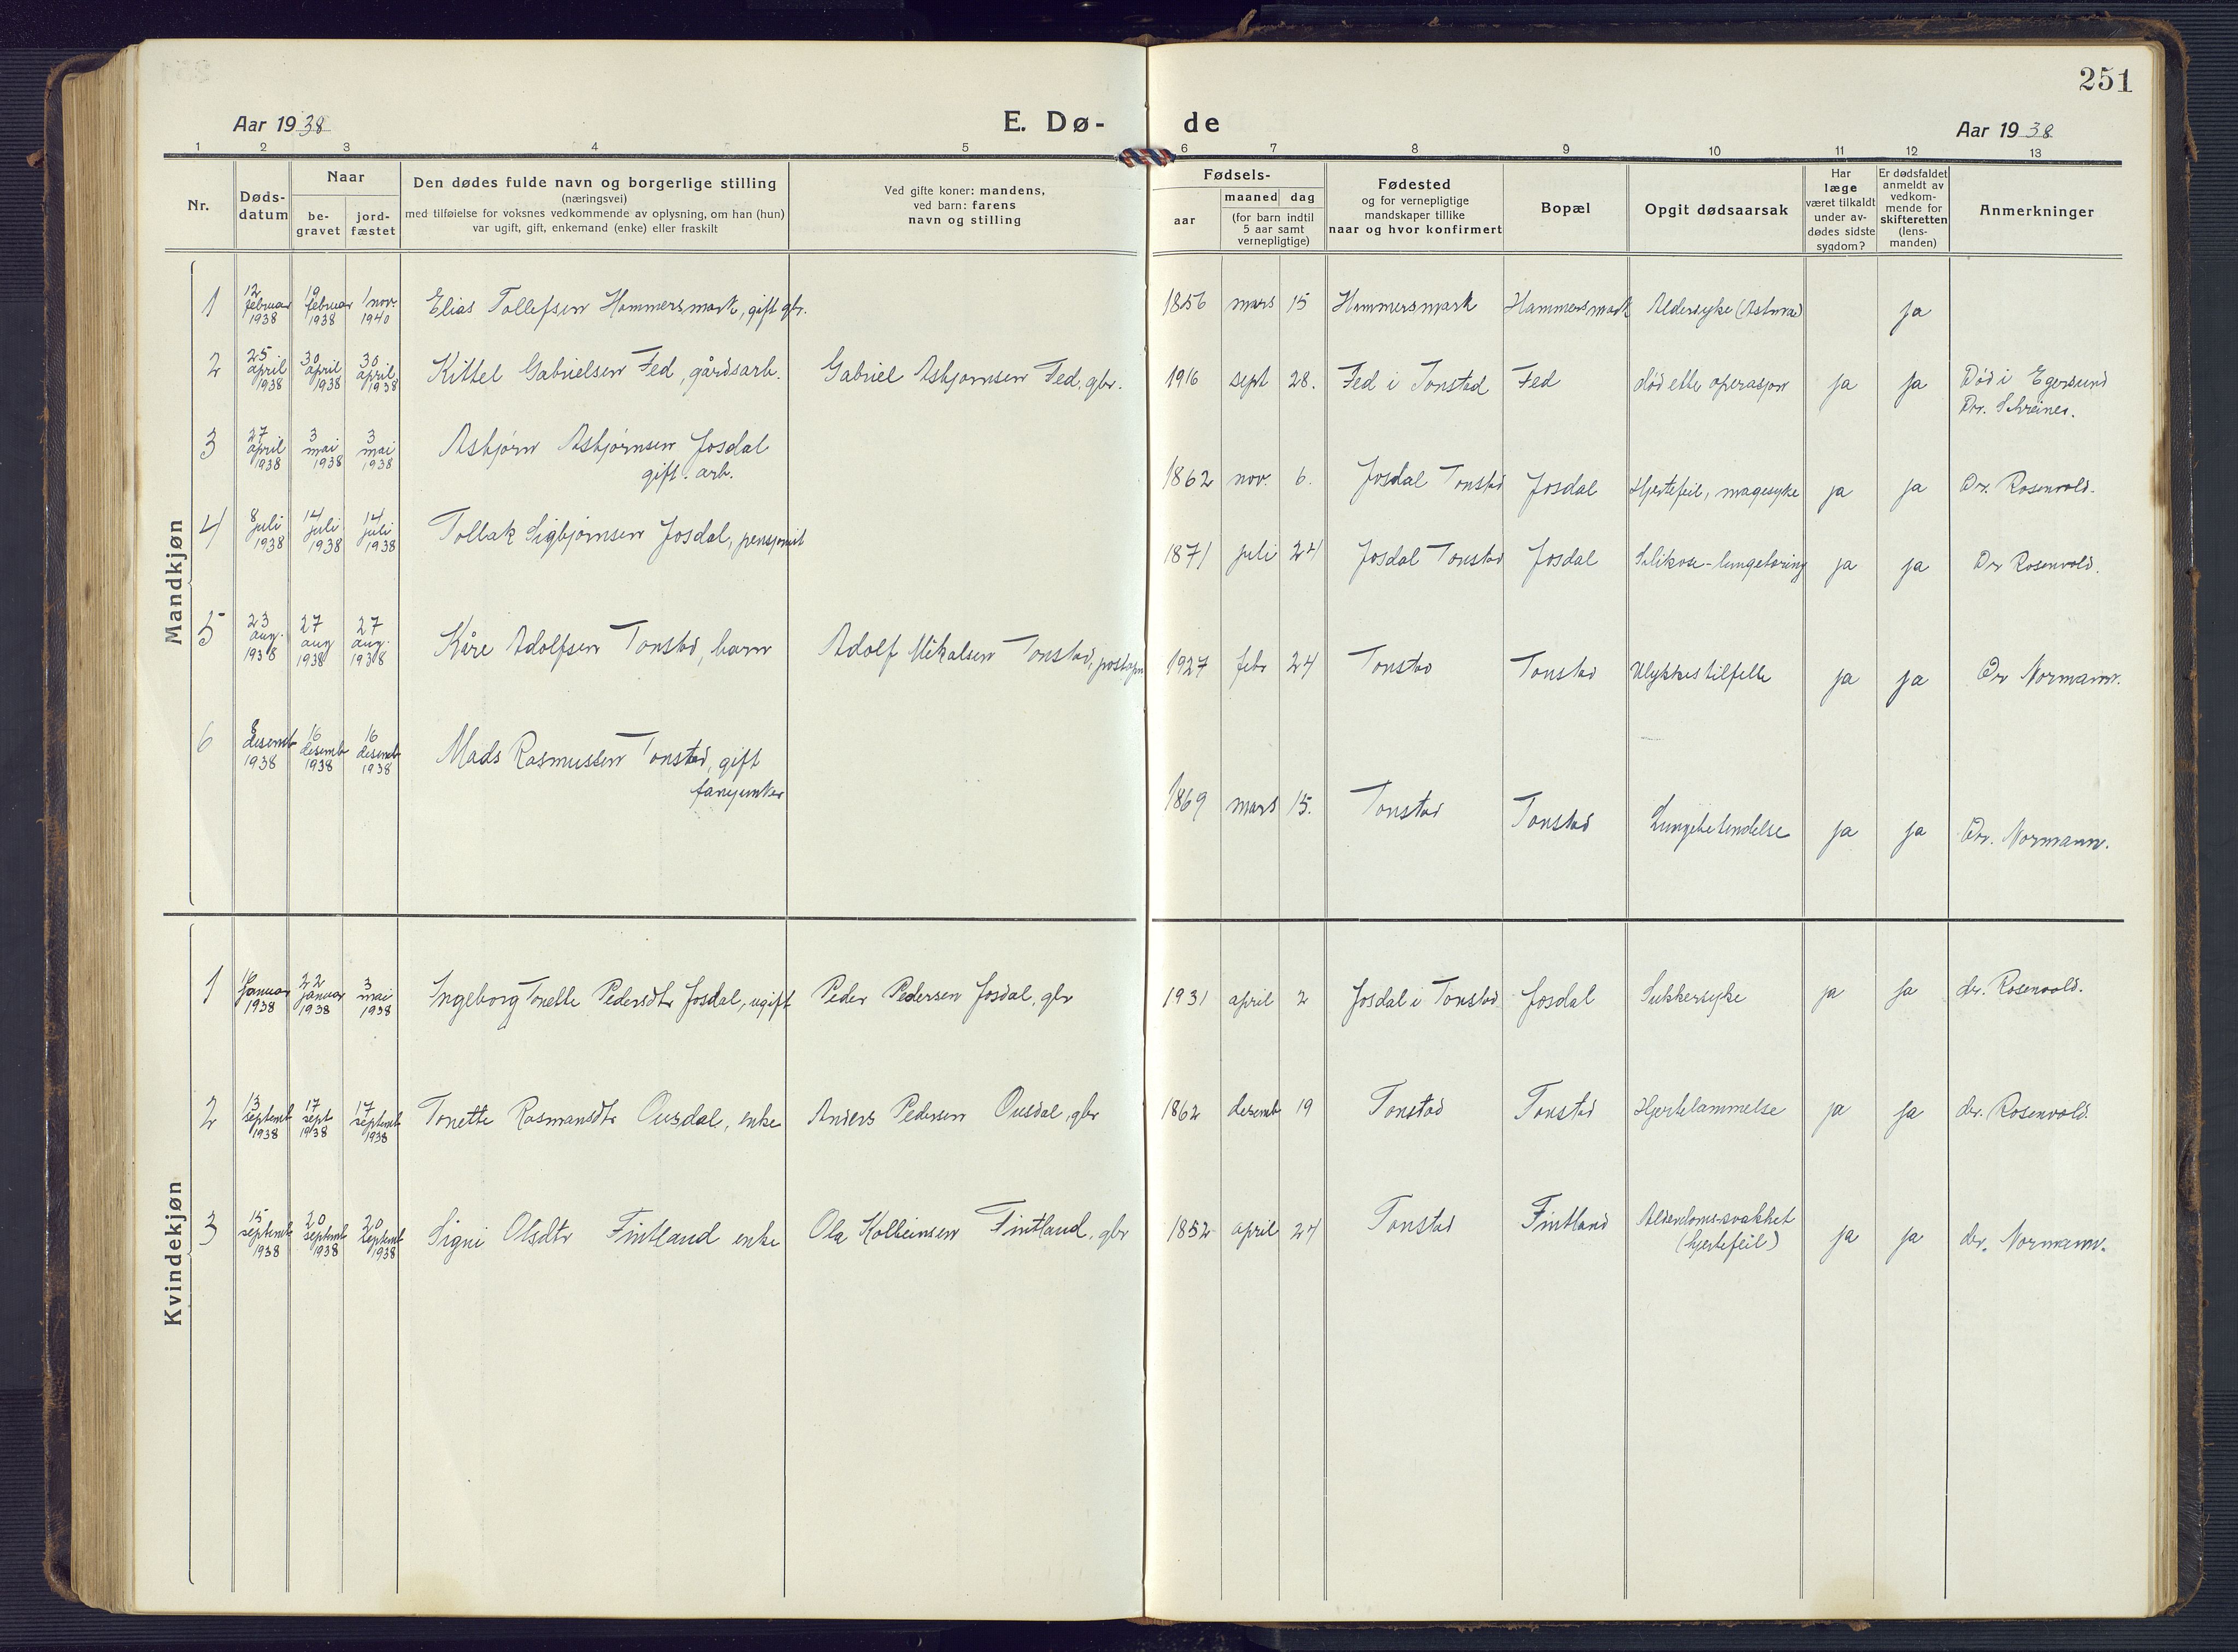 251
Aar 1938
E. Dø-
de
Aar 1938
1 2 3 4 5 6 7 8 9 10 11 12 13
Nr.
Døds-
datum
Naar
be-
gravet
jord-
fæstet
Den dødes fulde navn og borgerlige stilling
(næringsvei)
med tilføielse for voksnes vedkommende av oplysning, om han (hun)
var ugift, gift, enkemand (enke) eller fraskilt
Ved gifte koner: mandens,
ved barn: farens
navn og stilling
Fødsels-
aar
maaned dag
(for barn indtil
5 aar samt
vernepligtige)
Fødested
og for vernepligtige
mandskaper tillike
naar og hvor konfirmert
Bopæl
Opgit dødsaarsak
Har
læge
været tilkaldt
under av-
dødes sidste
sygdom?
Er dødsfaldet
anmeldt av
vedkom-
mende for
skifteretten
(lens-
manden)
Anmerkninger
Mandkjøn
1 12 februar 1938 19 februar 1938 1 nov. 1940 Elias Tollefsen Hammersmark, gift gbr. 1856 mars 15 Hammersmark Hammersmark Aldersyke (Astma) ja
2 25 april 1938 30 april 1938 30 april 1938 Kittel Gabrielsen Fed, gårdsarb. Gabriel Asbjørnsen Fed, gbr. 1916 sept 28. Fed i Tonstad Fed død etter operasjon ja ja Død i Egersund
Dr. Schreiner.
3 27 april 1938 3 mai 1938 3 mai 1938 Asbjørn Asbjørnsen Josdal
gift. arb. 1862 nov. 6. Josdal Tonstad Josdal Hjertefeil, magesyke ja ja Dr. Rosenvold.
4 8 juli 1938 14 juli 1938 14 juli 1938 Tollak Sigbjørnsen Josdal, pensjonist 1871 juli 24 Josdal Tonstad Josdal Silikose-lungetæring ja ja Dr Rosenvold.
5 23 aug. 1938 27 aug 1938 27 aug. 1938 Kåre Adolfsen Tonstad, barn Adolf Mikalsen Tonstad, postopn 1927 febr 24 Tonstad Tonstad Ulykkestilfelle ja ja Dr Normann.
6 8 desemb 1938 16 desemb 1938 16 desemb 1938 Mads Rasmussen Tonstad, gift
fanejunker 1869 mars 15. Tonstad Tonstad Lungebetendelse ja ja Dr. Normann.
Kvindekjøn
1 januar 1938 22 januar 1938 3 mai 1938 Ingeborg Tonette Pedersdtr Josdal, ugift Peder Pedersen Josdal, gbr 1931 april 2 Josdal i Tonstad Josdal Sukkersyke ja ja dr. Rosenvold.
2 13 septemb 1938 17 sept 1938 17 septemb 1938 Tonette Rasmansdtr Ousdal, enke Anders Pedersen Ousdal, gbr 1862 desemb 19 Tonstad Tonstad Hjertelammelse ja ja dr. Rosenvold.
3 15 septemb 1938 20 septemb 1938 20 septemb 1938 Signi Olsdtr Fintland enke Ola Kolbeinsen Fintland, gbr 1852 april 24 Tonstad Fintland Alderdomssvakhet
(hjertefeil) ja ja dr. Normann.